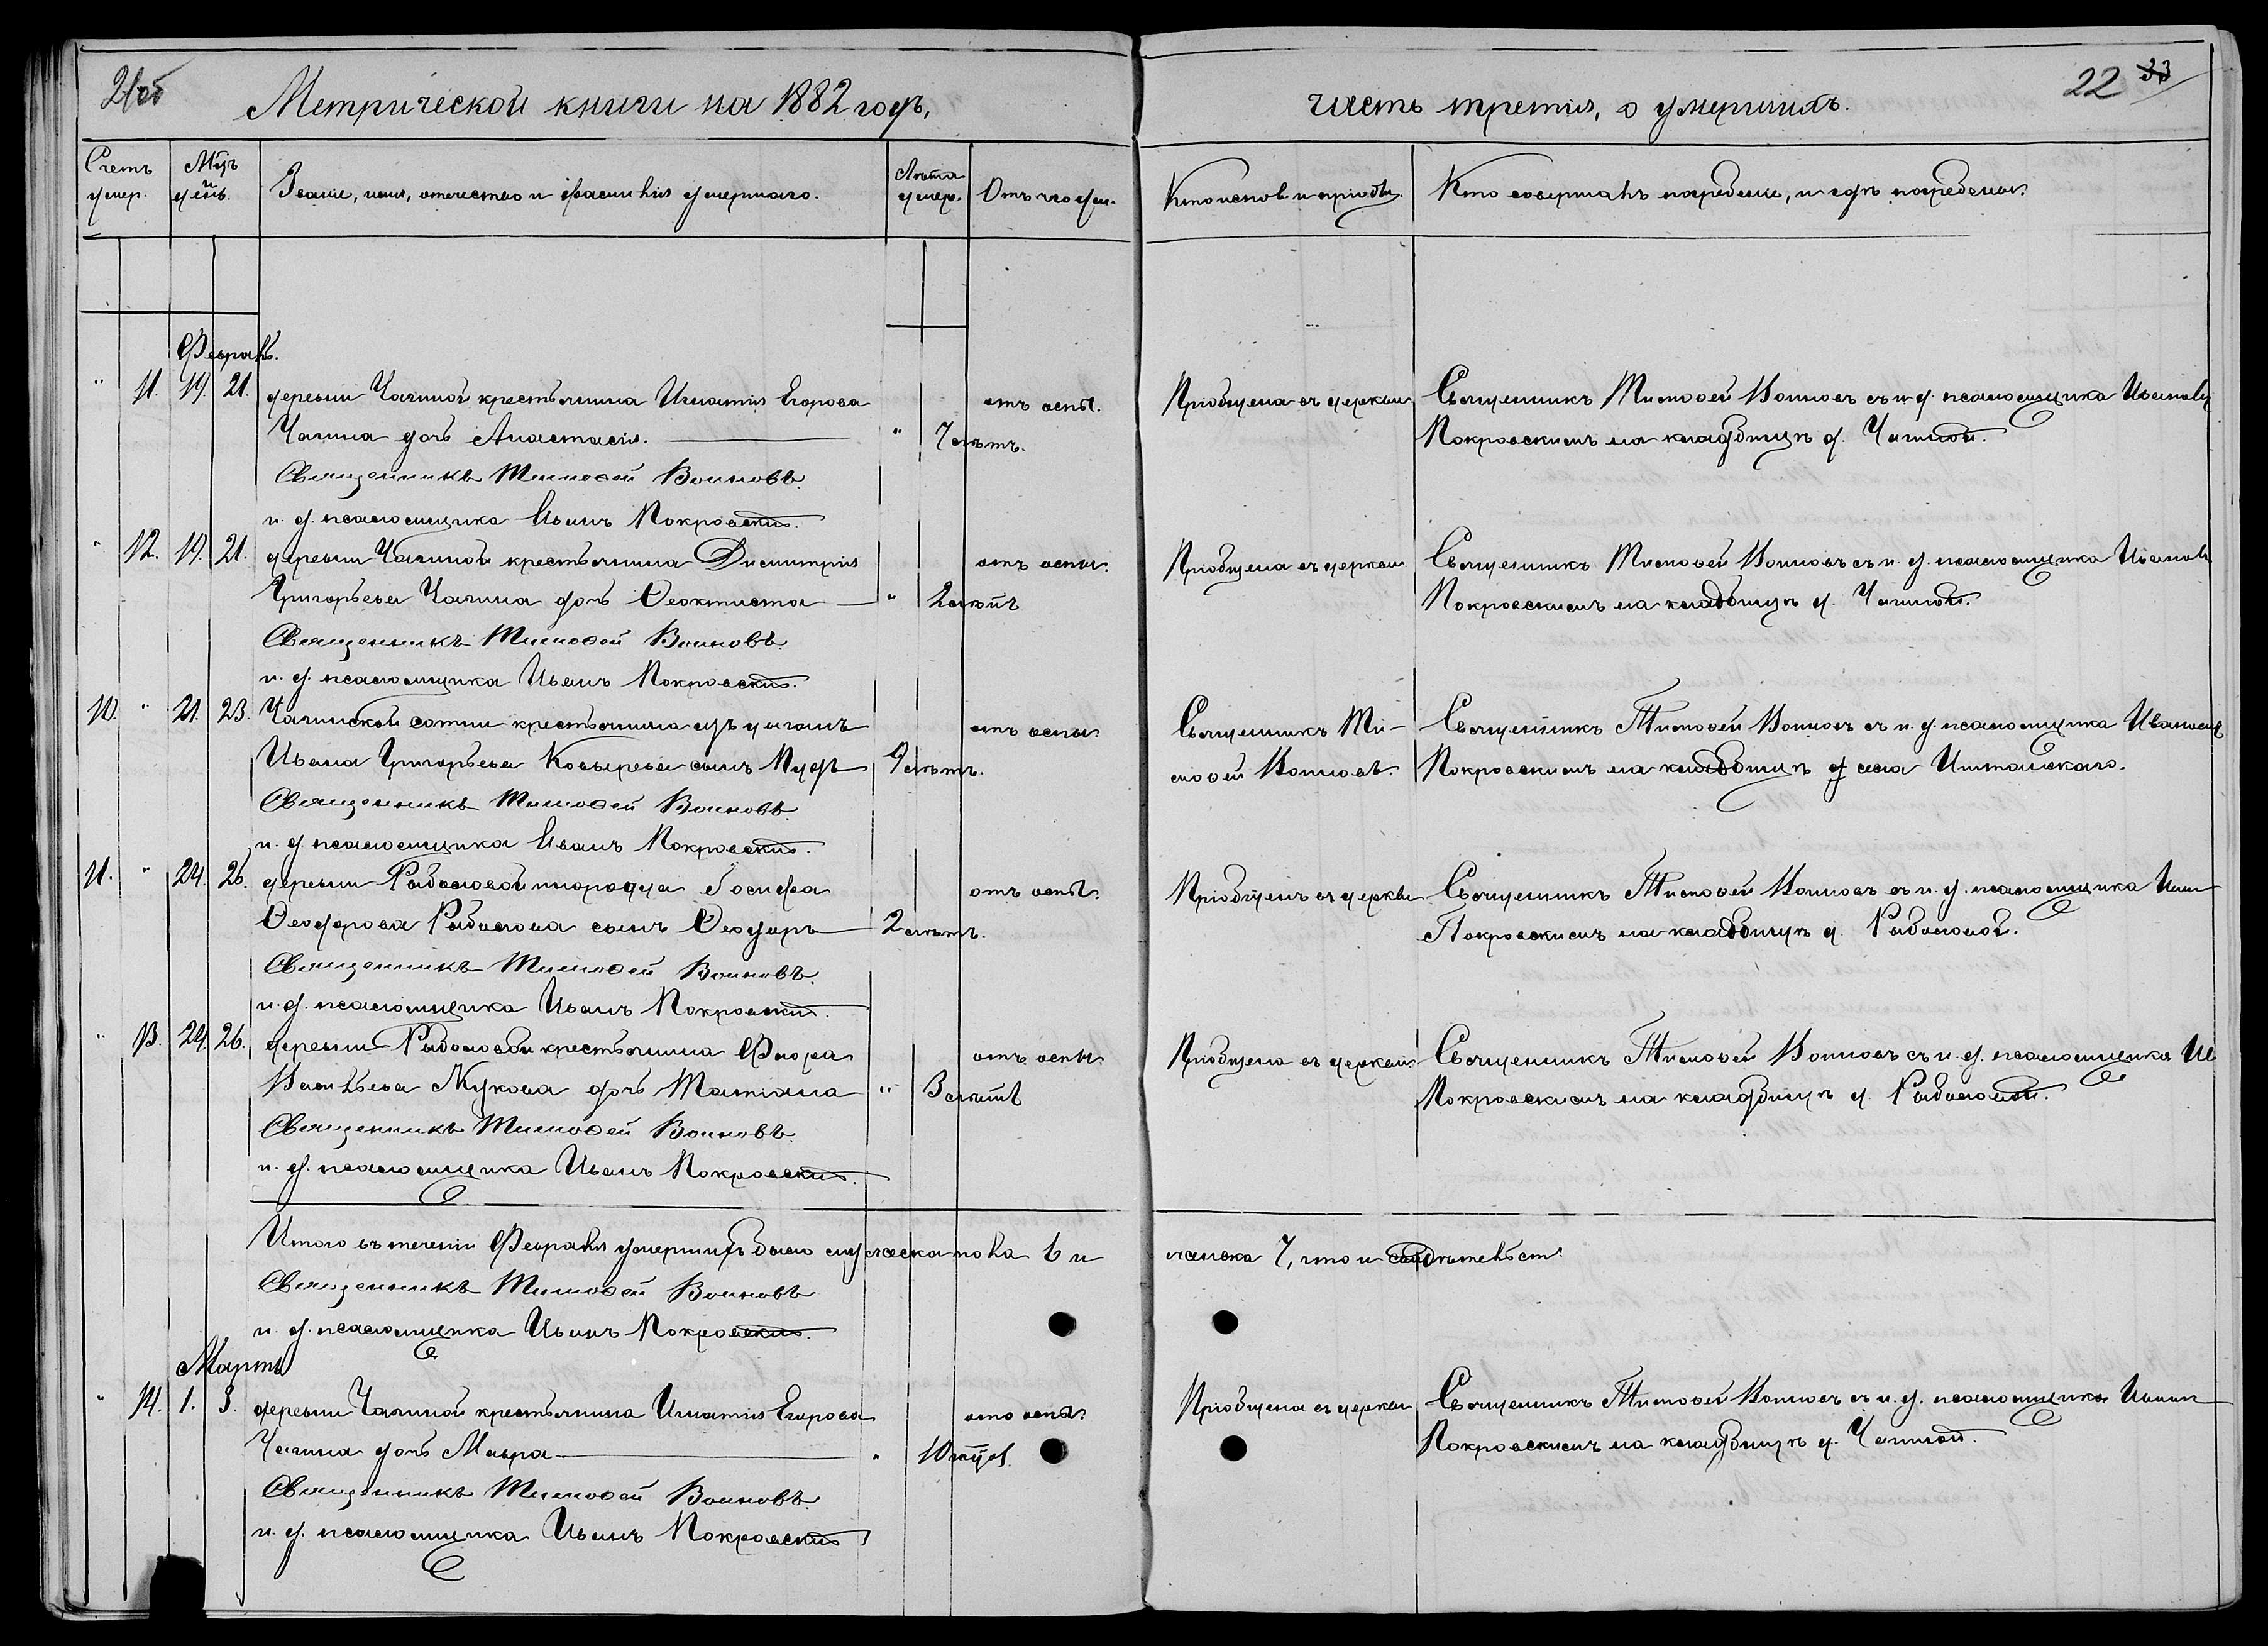 21об
Метрической книги на 1882 годъ,
часть третія, о умершихъ.
22 33
Счетъ умер.
Мѣс. и день.
Званіе, имя, отечество и фамилія умершаго.
Лѣта умер.
Отъ чего ум.
Кто испов. и пріобщ.
Кто совершалъ погребеніе, и гдѣ погребены.
Февраль.
" 11. 19. 21. деревни Чагиной крестьянина Игнатія Егорова отъ оспы. Пріобщена въ церкви Священникъ Тимоѳей Воиновъ съ и. д. псаломщика Иваномъ
Чагина дочь Анастасія. " 7 лѣтъ. Покровскимъ на кладбищѣ д. Чагиной.
Священникъ Тимоѳей Воиновъ.
и. д. псаломщика Иванъ Покровскій.
" 12. 19. 21. деревни Чагиной крестьянина Димитрія отъ оспы. Пріобщена въ церкви Священникъ Тимоѳей Воиновъ съ и. д. псаломщика Иваномъ
Григорьева Чагина дочь Ѳеоктиста " 2 лѣтъ Покровскимъ на кладбищѣ д. Чагиной.
Священникъ Тимоѳей Воиновъ.
и. д. псаломщика Иванъ Покровскій.
10. " 21. 23. Чагинской сотни крестьянина изъ цыганъ отъ оспы Священникъ Ти- Священникъ Тимоѳей Воиновъ съ и. д. псаломщика Иваномъ
Ивана Григорьева Козырева сынъ 9 лѣтъ. моѳей Воиновъ. Покровскимъ на кладбищѣ села
Священникъ Тимоѳей Воиновъ.
и. д. псаломщика Иванъ Покровскій.
11. " 24. 26. деревни инородца Іосифа отъ оспы. Пріобщенъ въ церкви Священникъ Тимоѳей Воиновъ съ и. д. псаломщика Иван
Ѳеодорова сынъ Ѳеодоръ 2 лѣтъ. Покровскимъ на кладбищѣ д.
Священникъ Тимоѳей Воиновъ.
и. д. псаломщика Иванъ Покровскій.
" 13. 24. 26. деревни крестьянина Флора отъ оспы. Пріобщена въ церкви Священникъ Тимоѳей Воиновъ съ и. д. псаломщика Ив
Васильева Жукова дочь Татіана " 3 лѣтъ Покровскимъ на кладбищѣ д.
Священникъ Тимоѳей Воиновъ.
и. д. псаломщика Иванъ Покровскій.
Итого въ теченіи Февраля умершихъ было мужеска пола 6 и женска 7, что и свидѣтельст.
Священникъ Тимоѳей Воиновъ
и. д. псаломщика Иванъ Покровскій.
Мартъ
" 14. 1. 3. деревни Чагиной крестьянина Игнатія Егорова отъ оспы. Пріобщена въ церкви Священникъ Тимоѳей Воиновъ съ и. д. псаломщика Иван
Чагина дочь Мавра " 10 мѣс. Покровскимъ на кладбищѣ д. Чагиной.
Священникъ Тимоѳей Воиновъ.
и. д. псаломщика Иванъ Покровскій